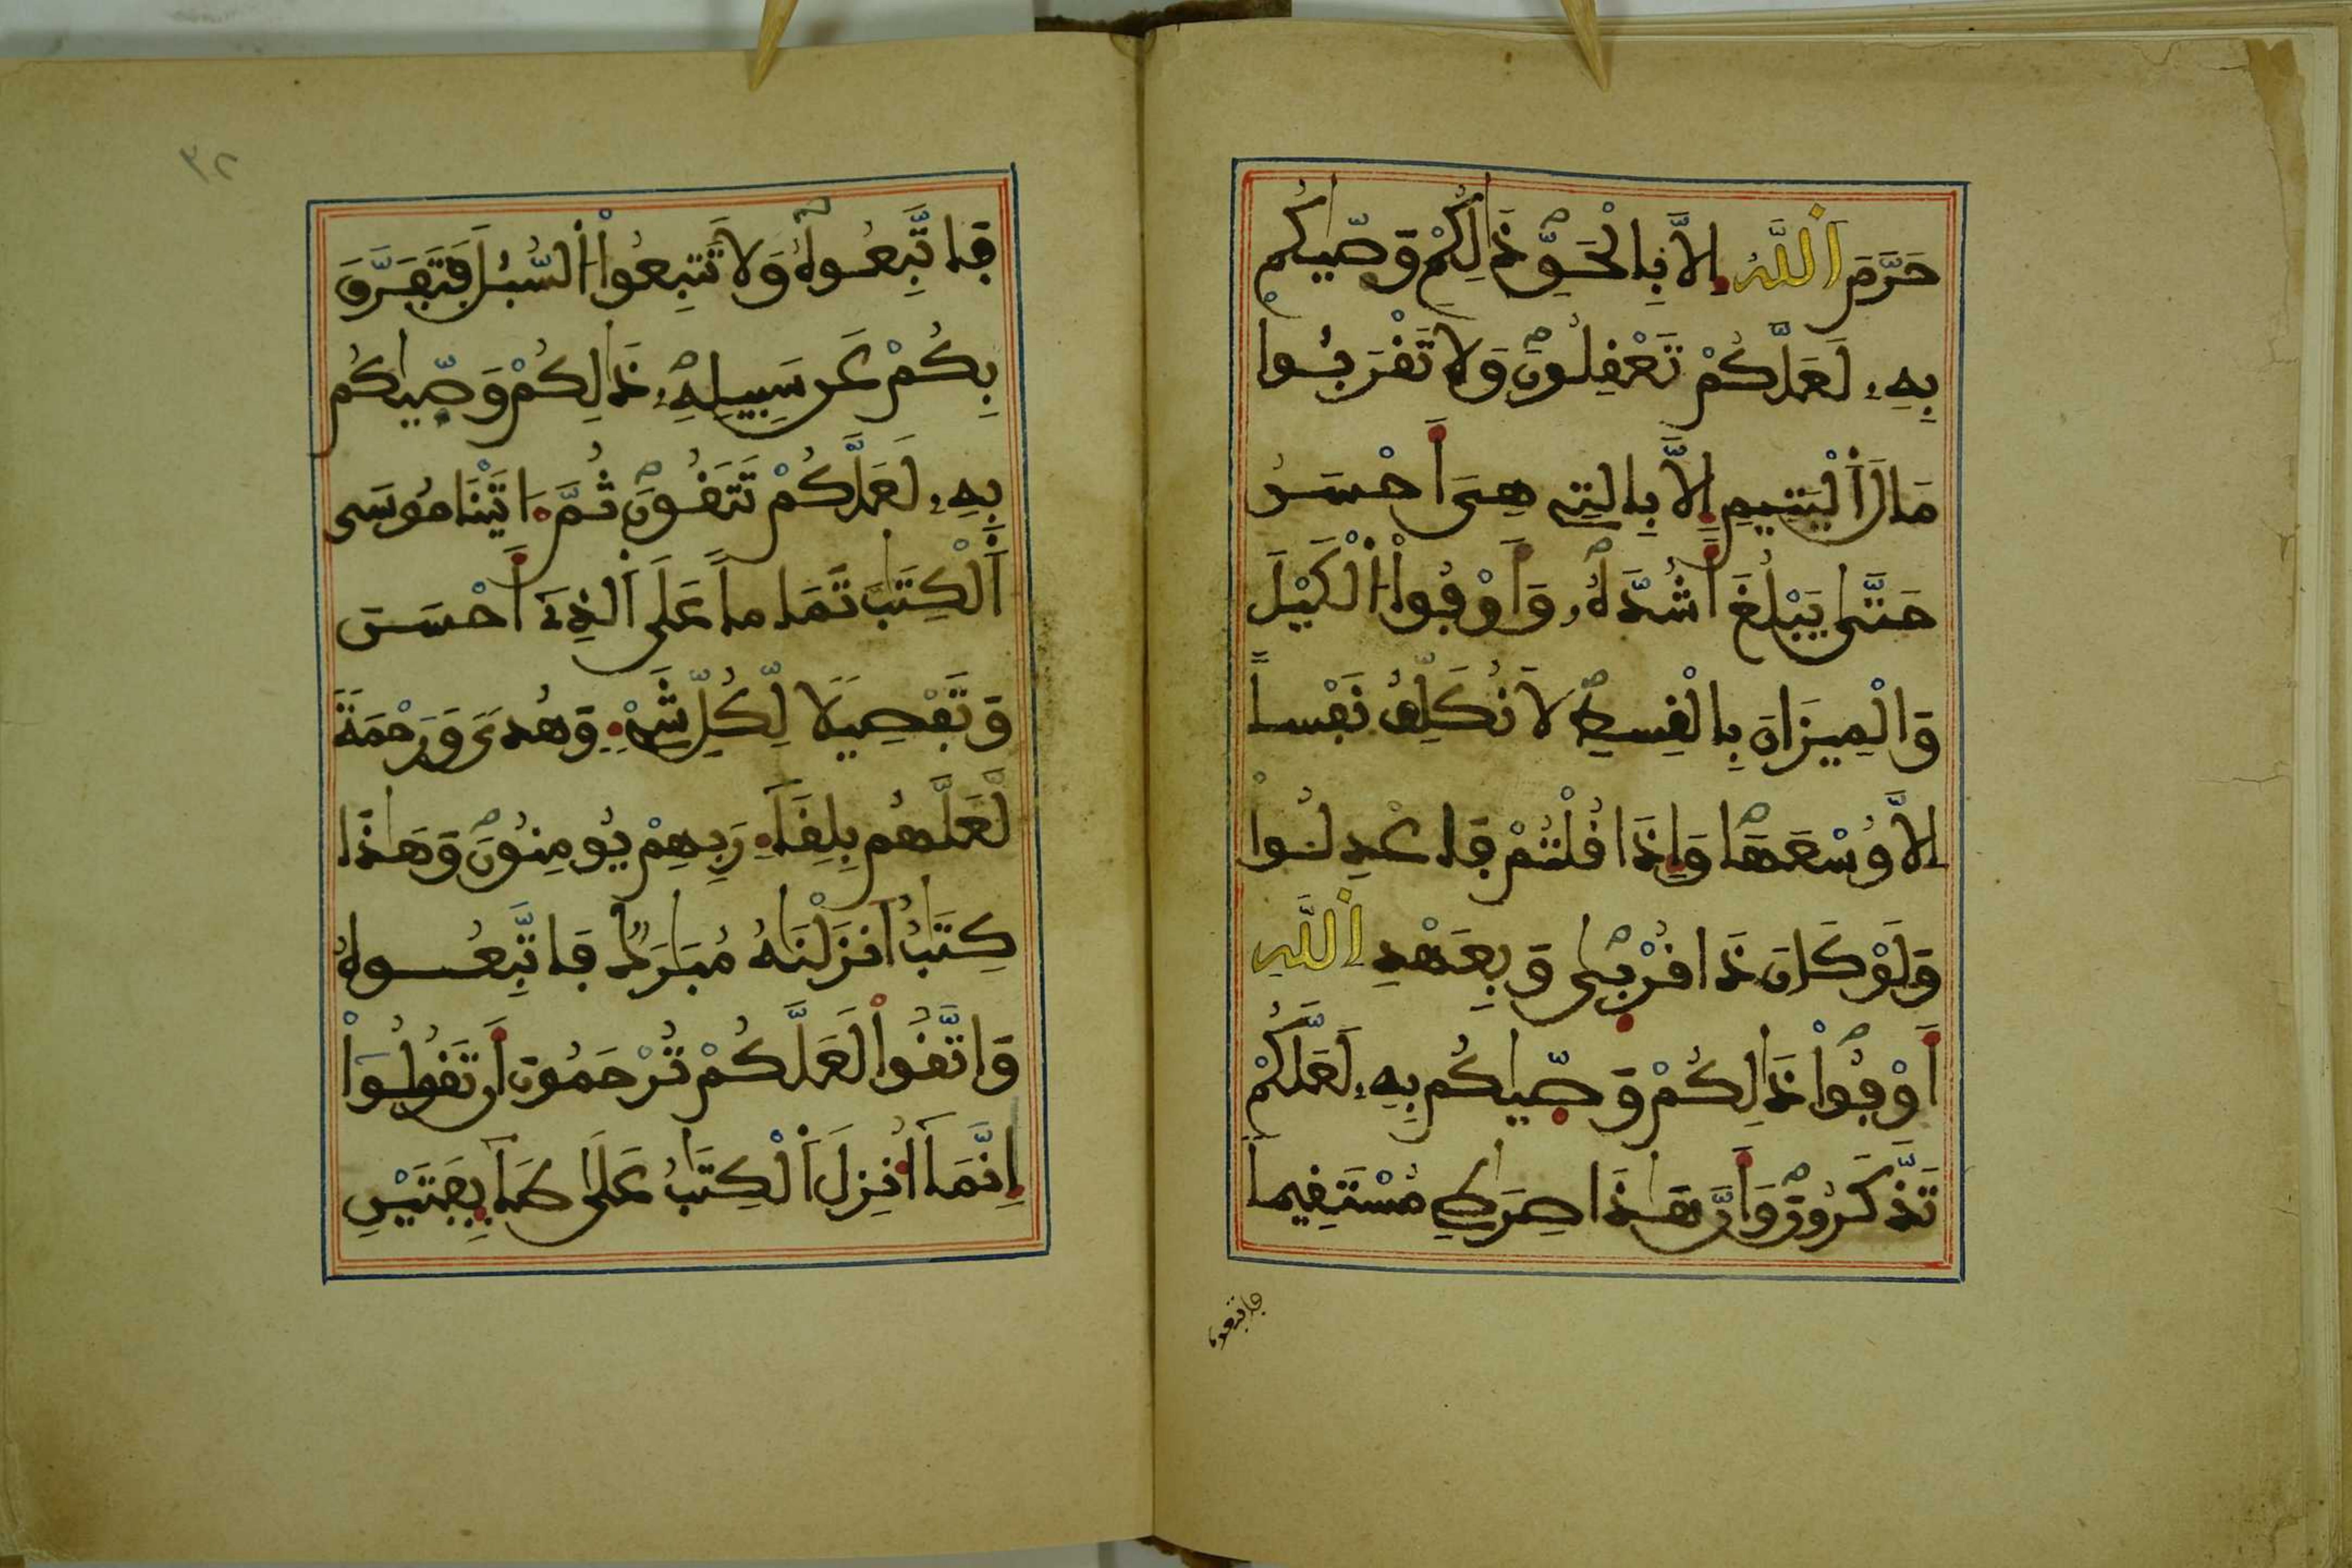 حَرَّمَ اَ۬للَّهُ إِلاَّ بِالْحَقِّ ذَٰلِكُمْ وَصّ۪يٰكُم
بِهِۦ لَعَلَّكُمْ تَعْقِلُونَۖ وَلَا تَقْرَبُواْ
مَالَ اَ۬لْيَتِيمِ إِلاَّ بِالتِے هِىَ أَحْسَنُ
حَتَّىٰ يَبْلُغَ أَشُدَّهُۥۖ وَأَوْفُواْ اُ۬لْكَيْلَ
وَالْمِيزَانَ بِالْقِسْطِۖ لَا نُكَلِّفُ نَفْساً
اِلاَّ وُسْعَهَاۖ وَإِذَا قُلْتُمْ فَاعْدِلُواْ
وَلَوْ كَانَ ذَا قُرْب۪يٰۖ وَبِعَهْدِ اِ۬للَّهِ
أَوْفُواْۖ ذَٰلِكُمْ وَصّ۪يٰكُم بِهِۦ لَعَلَّكُمْ
تَذَّكَّرُونَۖ وَأَنَّ هَٰذَا صِرَٰطِے مُسْتَقِيماً
فاتبعوه
٣٢
فَاتَّبِعُوهُۖ وَلَا تَتَّبِعُواْ اُ۬لسُّبُلَ فَتَفَرَّقَ
بِكُمْ عَن سَبِيلِهِۦۖ ذَٰلِكُمْ وَصّ۪يٰكُم
بِهِۦ لَعَلَّكُمْ تَتَّقُونَۖ ثُمَّ ءَاتَيْنَا مُوسَى
اَ۬لْكِتَٰبَ تَمَاماً عَلَى اَ۬لذِےٓ أَحْسَنَ
وَتَفْصِيلًا لِّكُلِّ شَےْءٖ وَهُدىً وَرَحْمَةً
لَّعَلَّهُم بِلِقَآءِ رَبِّهِمْ يُومِنُونَۖ وَهَٰذَا
كِتَٰبٌ اَنزَلْنَٰهُ مُبَٰرَكٌ فَاتَّبِعُوهُ
وَاتَّقُواْ لَعَلَّكُمْ تُرْحَمُونَ أَن تَقُولُوٓاْ
إِنَّمَآ أُنزِلَ اَ۬لْكِتَٰبُ عَلَىٰ طَآئِفَتَيْنِ